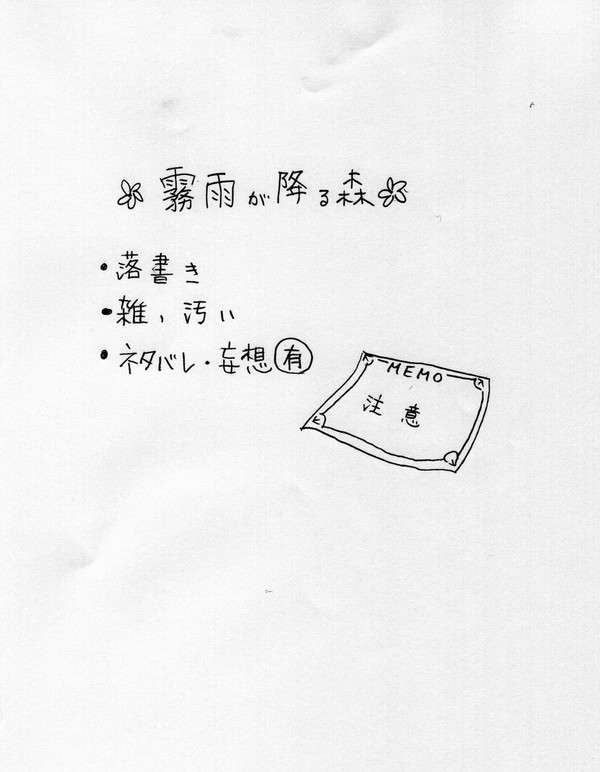 霧雨が降る森
・落書き
・雑、汚い
・ネタバレ・妄想有
MEMO
注意